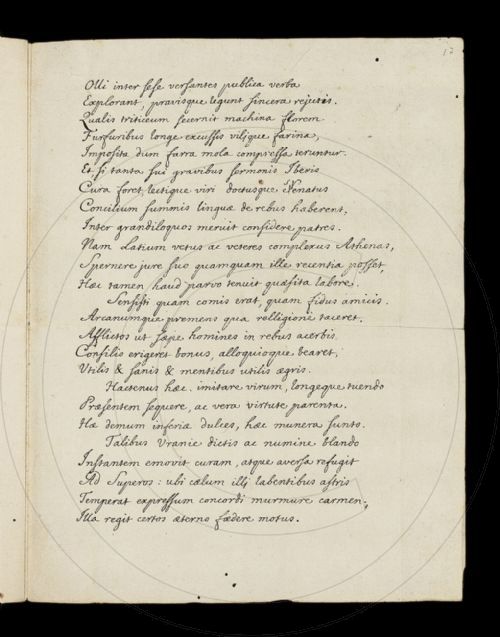 17
Olli inter sese versantes publica verba
Explorant, pravisque legunt sincera rejectis.
Qualis triticeum secernit machina florem
Furfuribus longe excussis vilique farina,
Imposita dum farra mola compressa teruntur.
Et si tanta sui gravibus sermonis Iberis
Cura foret, lectique viri doctusque Venatus
Concilium summis linguæ de rebus haberent,
Inter grandiloquos meruit considere patres.
Nam Latium vetus ac veteres complexus Athenas,
Spernere jure suo quamquam ille recentia posset,
Hæc tamen haud parvo tenuit quæsita labore.
Sensisti quam comis erat, quam fidus amicis.
Arcanumque premens qua relligione taceret.
Afflictos ut sæpe homines in rebus acerbis
Consilio erigeret bonus, alloquioque bearet,
Utilis & sanis & mentibus utilis ægris.
Hactenus hæc. imitare virum, longeque tuendo
Præsentem sequere, ac vera virtute parenta.
Hæ demum inferiæ dulces, hæc munera sunto.
Talibus Uranie dictis ac numine blando
Instantem emovit curam, atque aversa refugit
Ad Superos: ubi cælum illi labentibus astris
Temperat expressum concordi murmure carmen,
Illa regit certos æterno fœdere motus.